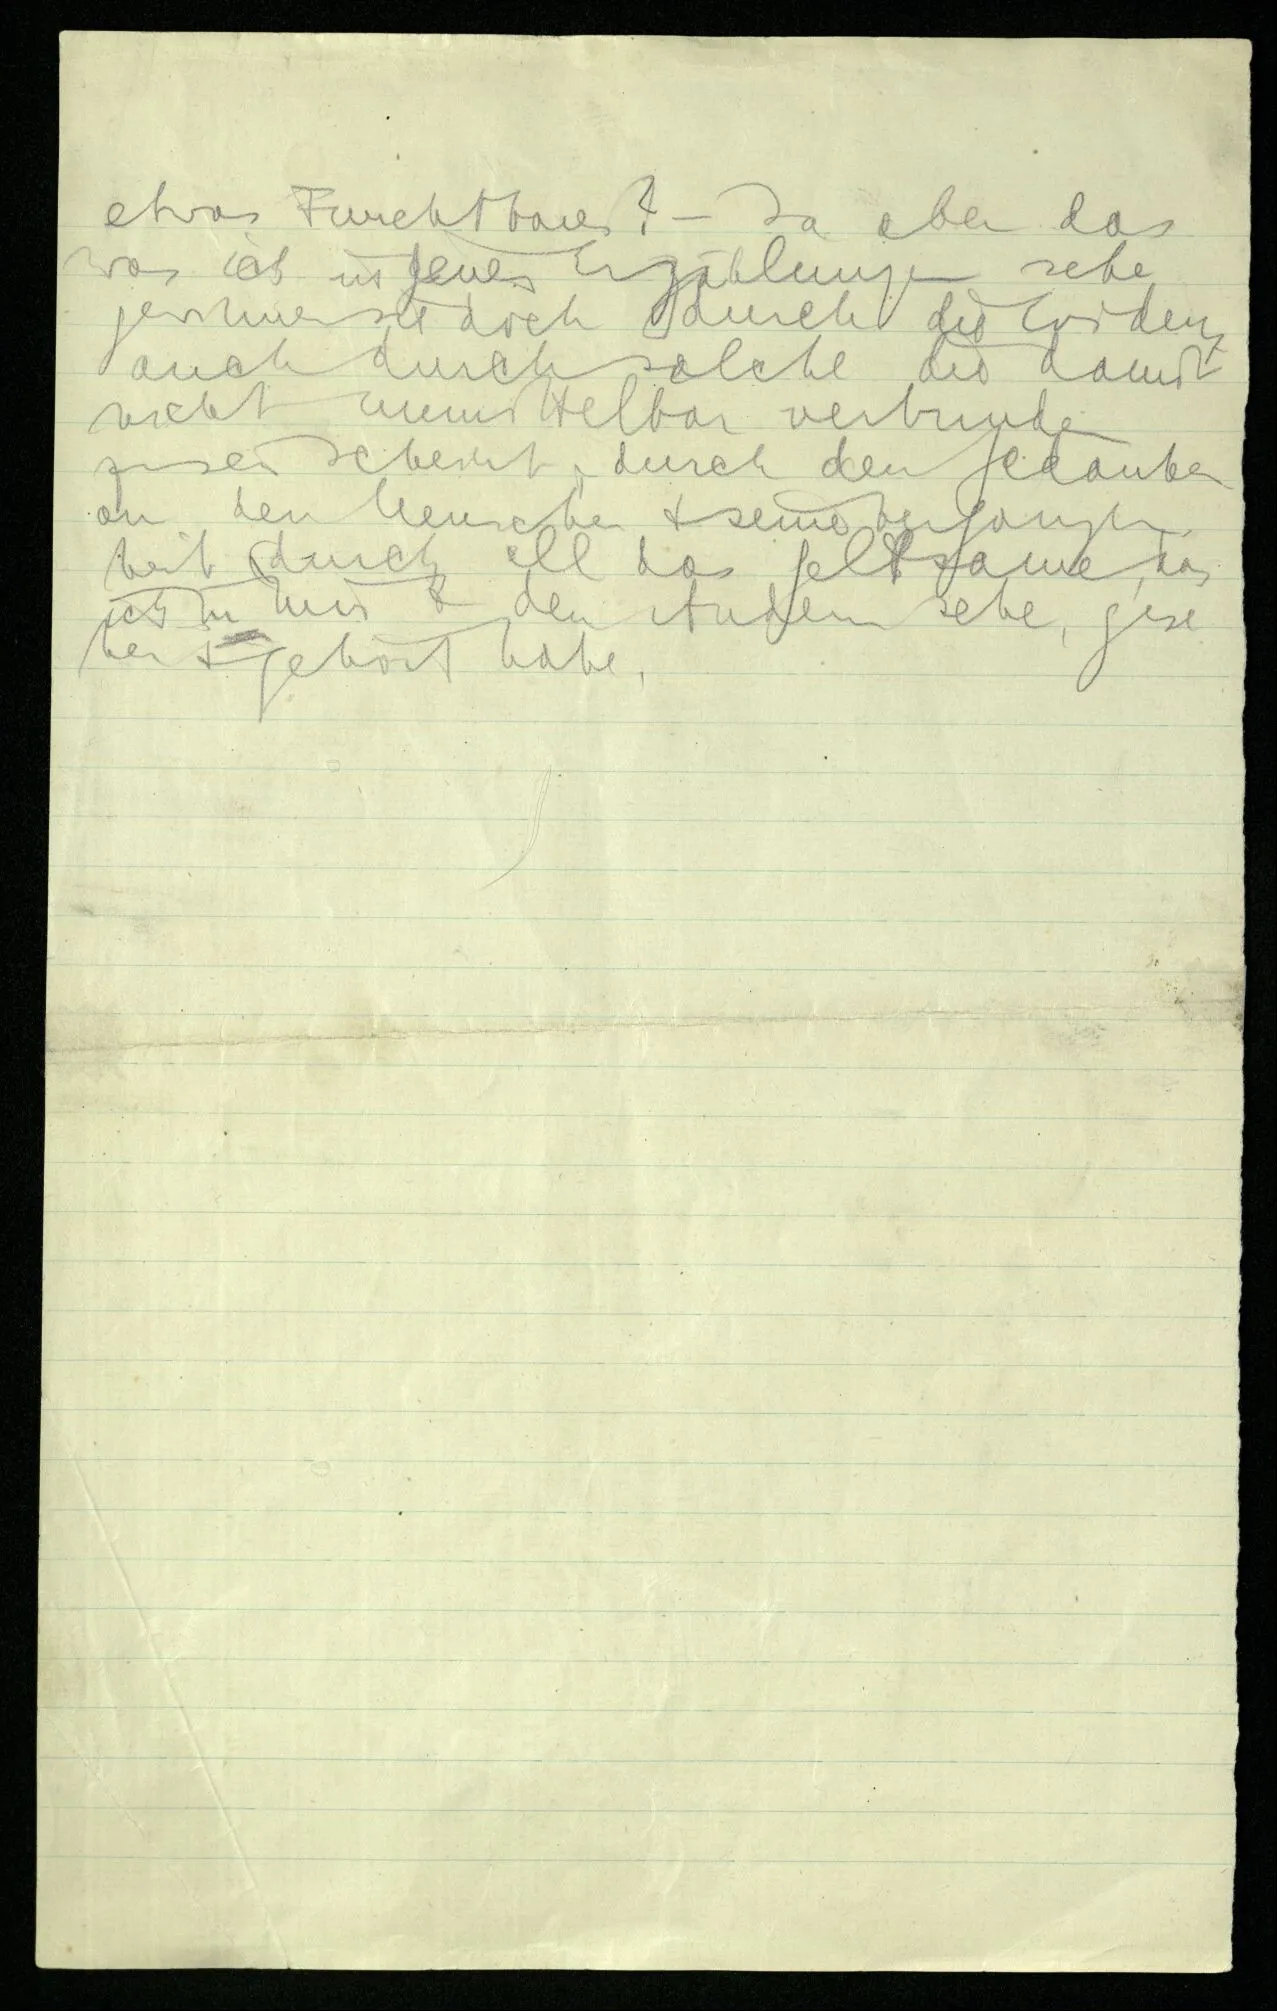 etwas Furchtbares? – Ja aber das
was ich in jenen Erzählungen sehe
gewinnen sie doch durch die Evidenz,
auch durch solche die damit
nicht unmittelbar verbunden
zu sein scheint, durch den Gedanken
an den Menschen & seine Vergangen
heit durch all das Seltsame, das
ich in mir & den Andern sehe, gese
hen & gehört habe.